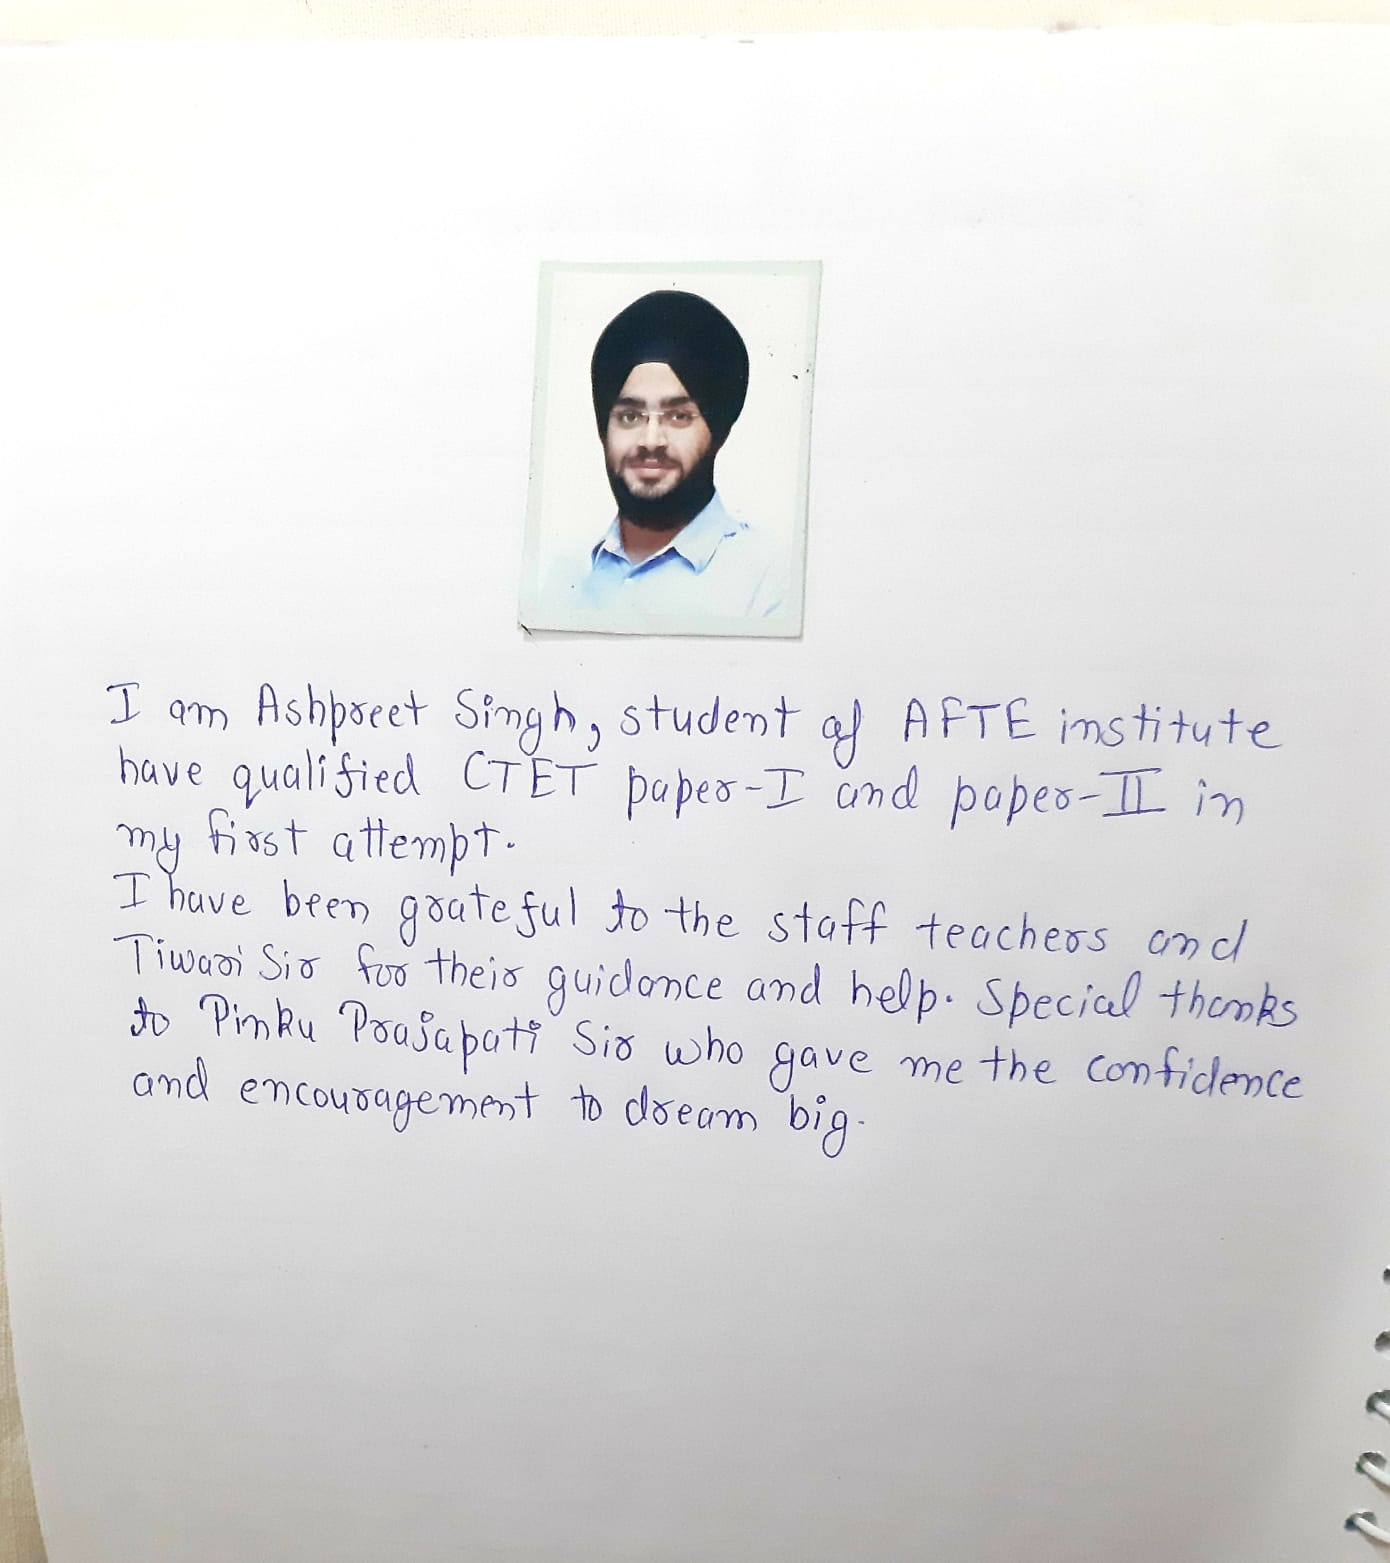 I am Ashpreet Singh, student of AFTE institute
have qualified CTET paper-I and paper-II in
my first attempt.
I have been grateful to the staff teachers and
Tiwari Sir for their guidance and help. Special thanks
to Pinku Prajapati Sir who gave me the confidence
and encouragement to dream big.